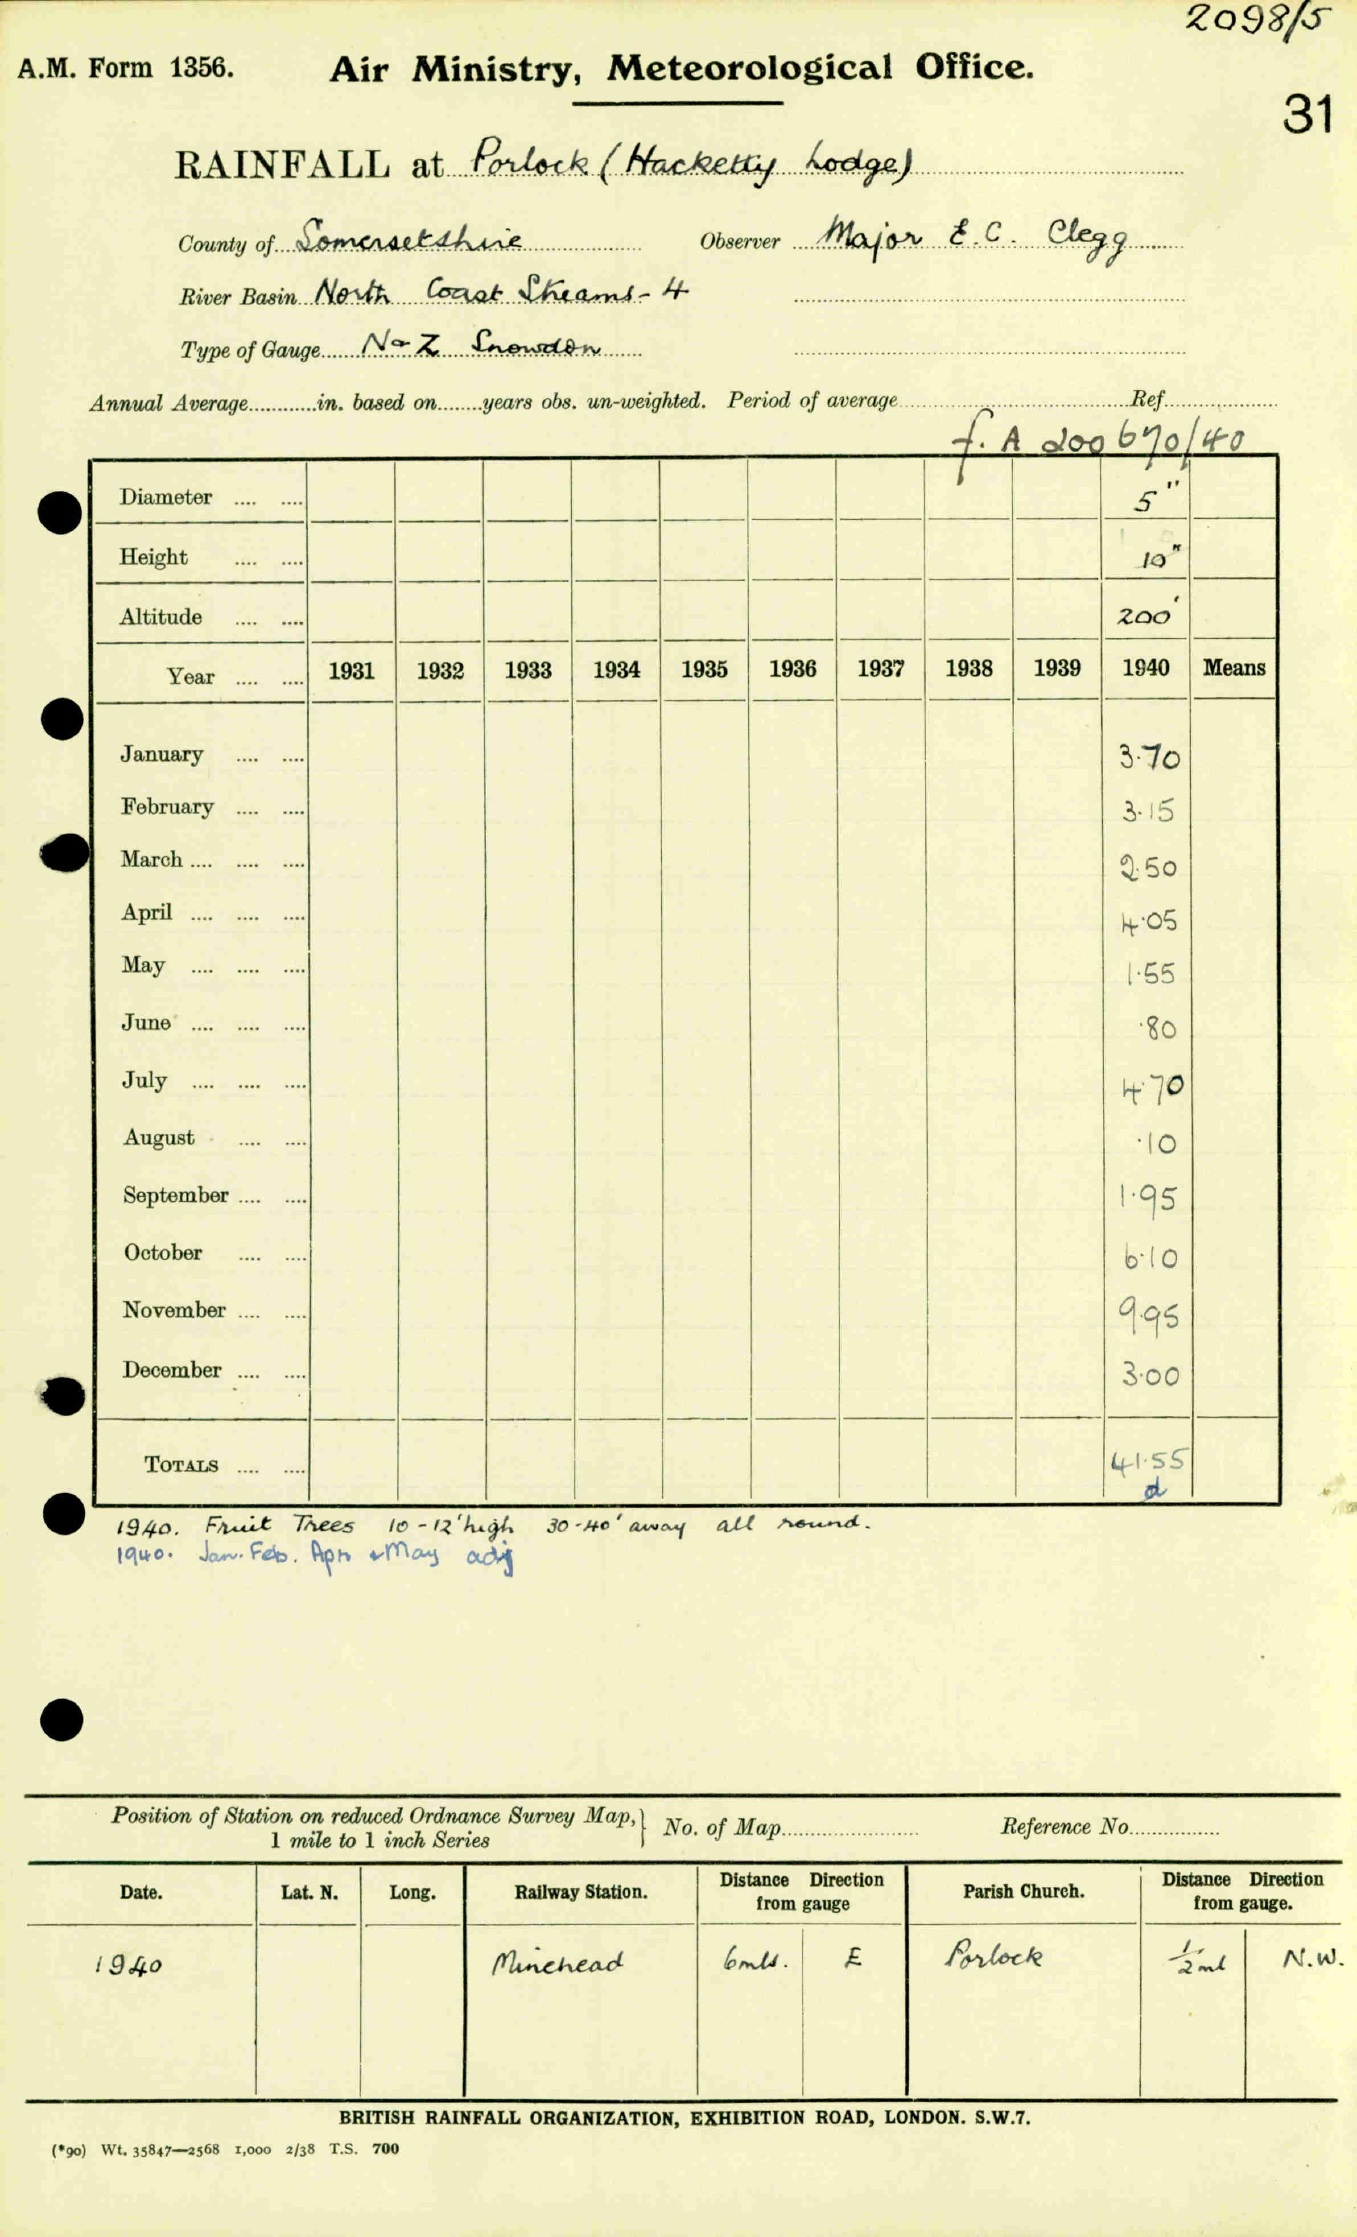 2098/5
A.M. Form 1356. Air Ministry, Meteorological Office.
31
RAINFALL at Porlock (Hacketty Lodge)
County of Somersetshire Observer Major E.C. Clegg
River Basin North Coast Streams - 4
Type of Gauge Snowdon
Annual Average............in. based on........years obs. un-weighted. Period of average Ref
f. A 200670/40
Diameter .... .... 5"
Height .... .... 10"
Altitude .... .... 200'
Year .... .... 1931 1932 1933 1934 1935 1936 1937 1938 1939 1940 Means
January .... .... 3.70
February .... .... 3.15
March .... .... .... 2.50
April .... .... .... 4.05
May .... .... .... 1.55
June .... .... .... .80
July .... .... .... 4.70
August .... .... .10
September .... .... 1.95
October .... .... 6.10
November .... .... 9.95
December .... .... 3.00
TOTALS .... .... 41.55
d
1940. Fruit Trees 10-12' high 30-40' away all round.
1940. Jan. Feb. Apr & May adj
Position of Station on reduced Ordnance Survey Map, 1 mile to 1 inch Series } No. of Map Reference No
Date. Lat. N. Long. Railway Station. Distance Direction from gauge Parish Church. Distance Direction from gauge.
1940 Minehead 6 mls. E Porlock 1/2 ml N.W.
BRITISH RAINFALL ORGANIZATION, EXHIBITION ROAD, LONDON. S.W.7.
(*90) Wt. 35847—2568 1,000 2/38 T.S. 700